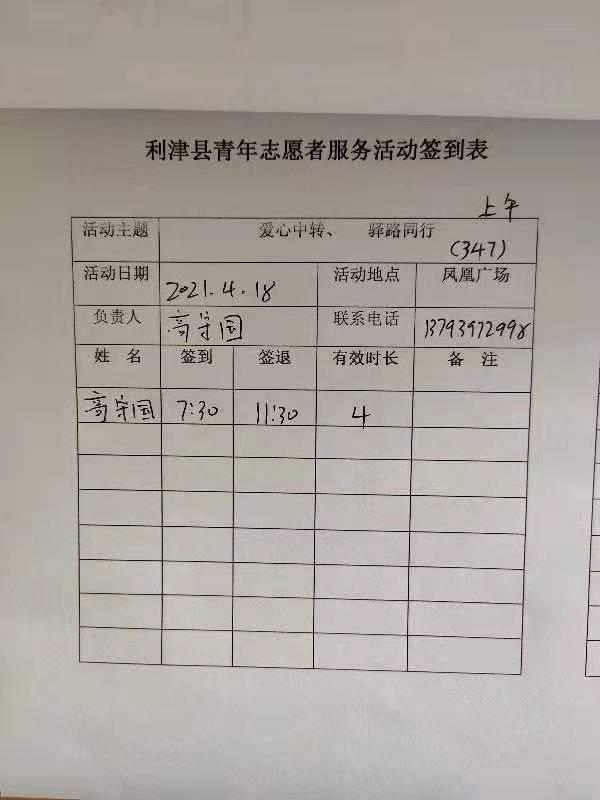 利津县青年志愿者服务活动签到表
上午
活动主题 爱心中转、 驿路同行
(347)
活动日期 2021.4.18 活动地点 凤凰广场
负责人 高守国 联系电话 13793972998
姓 名 签到 签退 有效时长 备 注
高守国 7:30 11:30 4